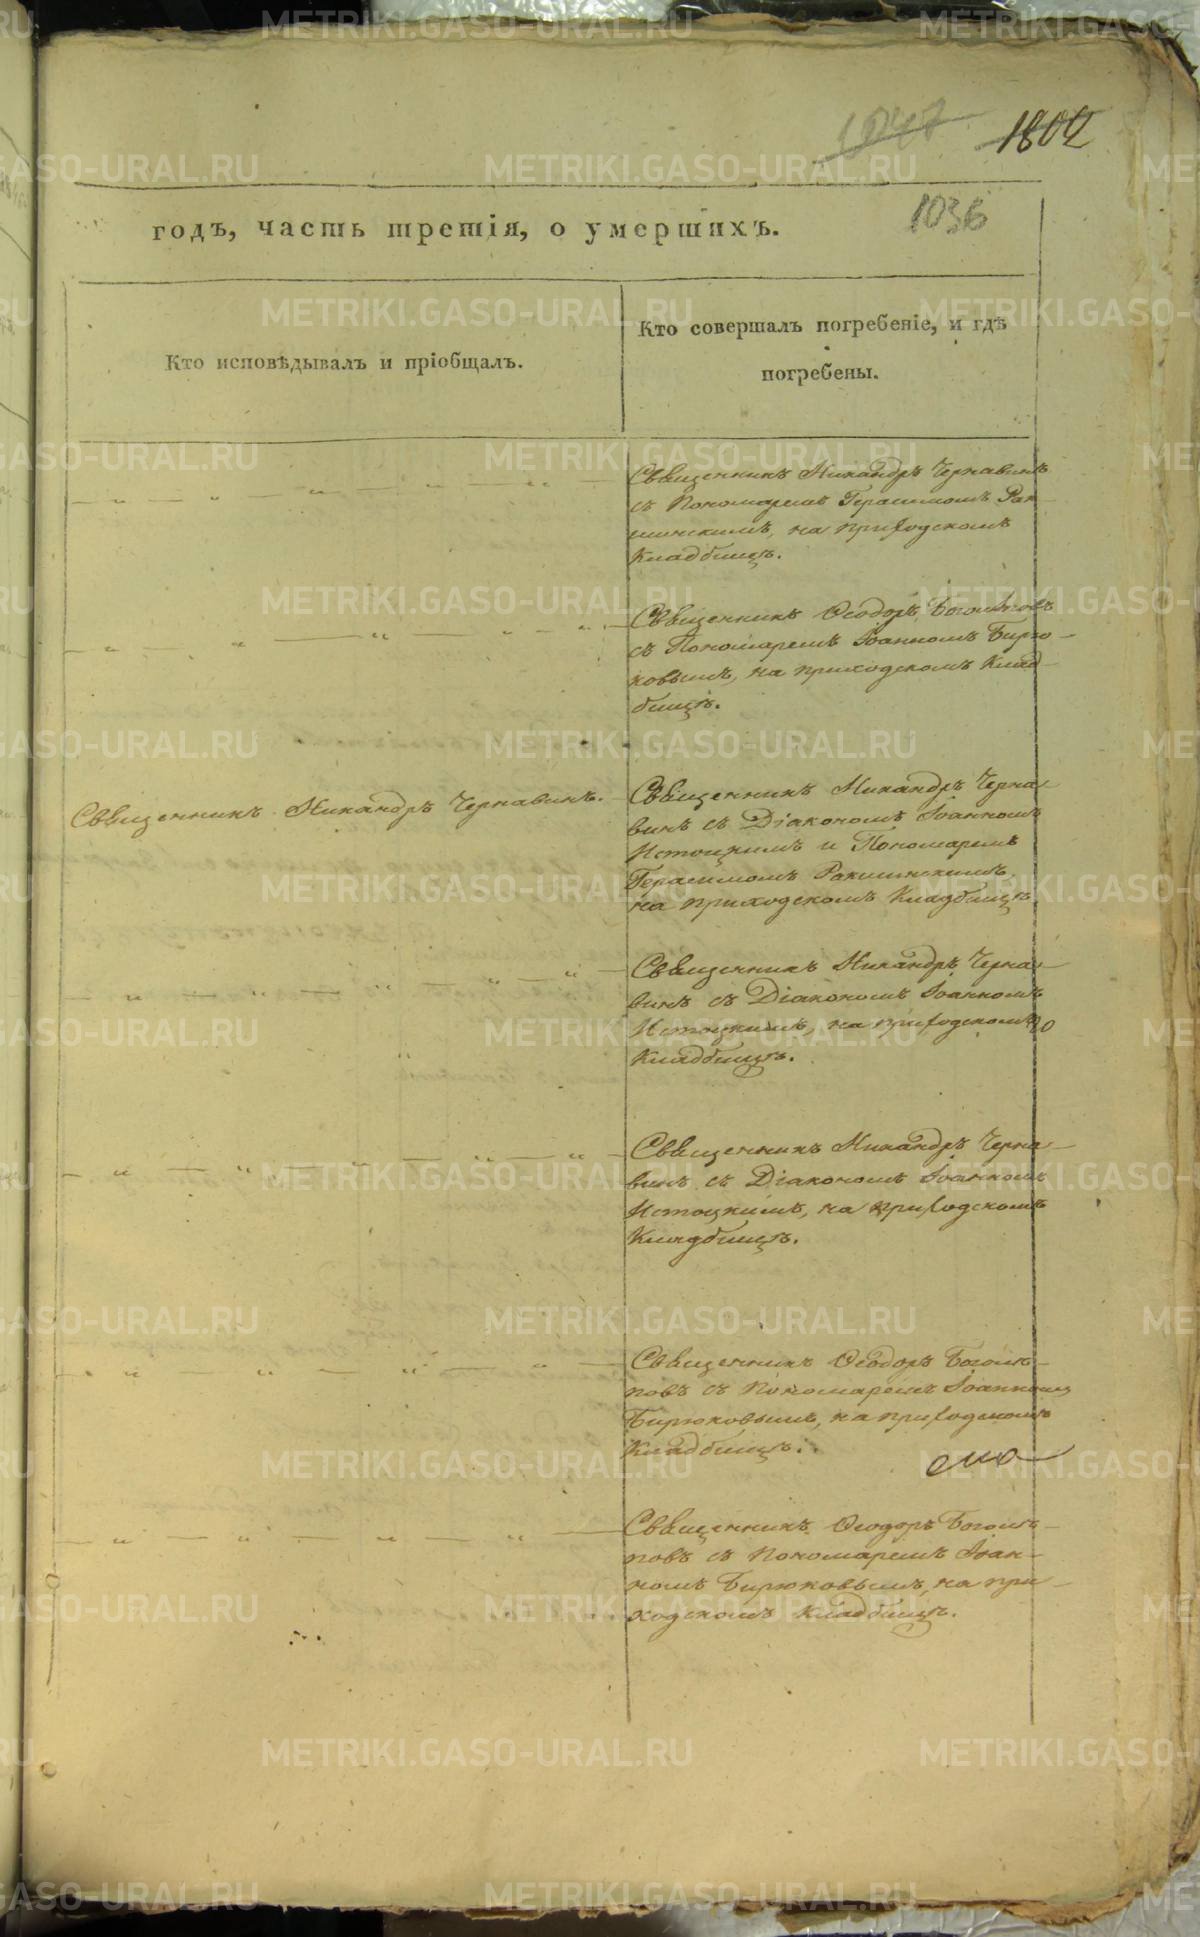 1047
1802
1036
годъ, часть третія, о умершихъ.
Кто исповѣдывалъ и пріобщалъ.
Кто совершалъ погребеніе, и гдѣ
погребены.
Священникъ Никандръ Чернавинъ
съ Пономаремъ Герасимомъ Рак-
шинскимъ, на приходскомъ
Кладбищѣ.
Священникъ Ѳеодоръ Боголѣповъ
съ Пономаремъ Іоанномъ Бирю-
ковымъ, на приходскомъ Клад-
бищѣ.
Священникъ Никандръ Чернавинъ.
Священникъ Никандръ Черна-
винъ съ Діакономъ Іоанномъ
Истоцкимъ и Пономаремъ
Герасимомъ Ракшинскимъ,
на приходскомъ Кладбищѣ
Священникъ Никандръ Черна-
винъ съ Діакономъ Іоанномъ
Истоцкимъ, на приходскомъ
Кладбищѣ.
Священникъ Никандръ Черна-
винъ съ Діакономъ Іоанномъ
Истоцкимъ, на приходскомъ
Кладбищѣ.
Священникъ Ѳеодоръ Боголѣ-
повъ съ Пономаремъ Іоанномъ
Бирюковымъ, на приходскомъ
Кладбищѣ.
Священникъ Ѳеодоръ Боголѣ-
повъ съ Пономаремъ Іоан-
номъ Бирюковымъ, на при-
ходскомъ Кладбищѣ.
METRIKI.GASO-URAL.RU